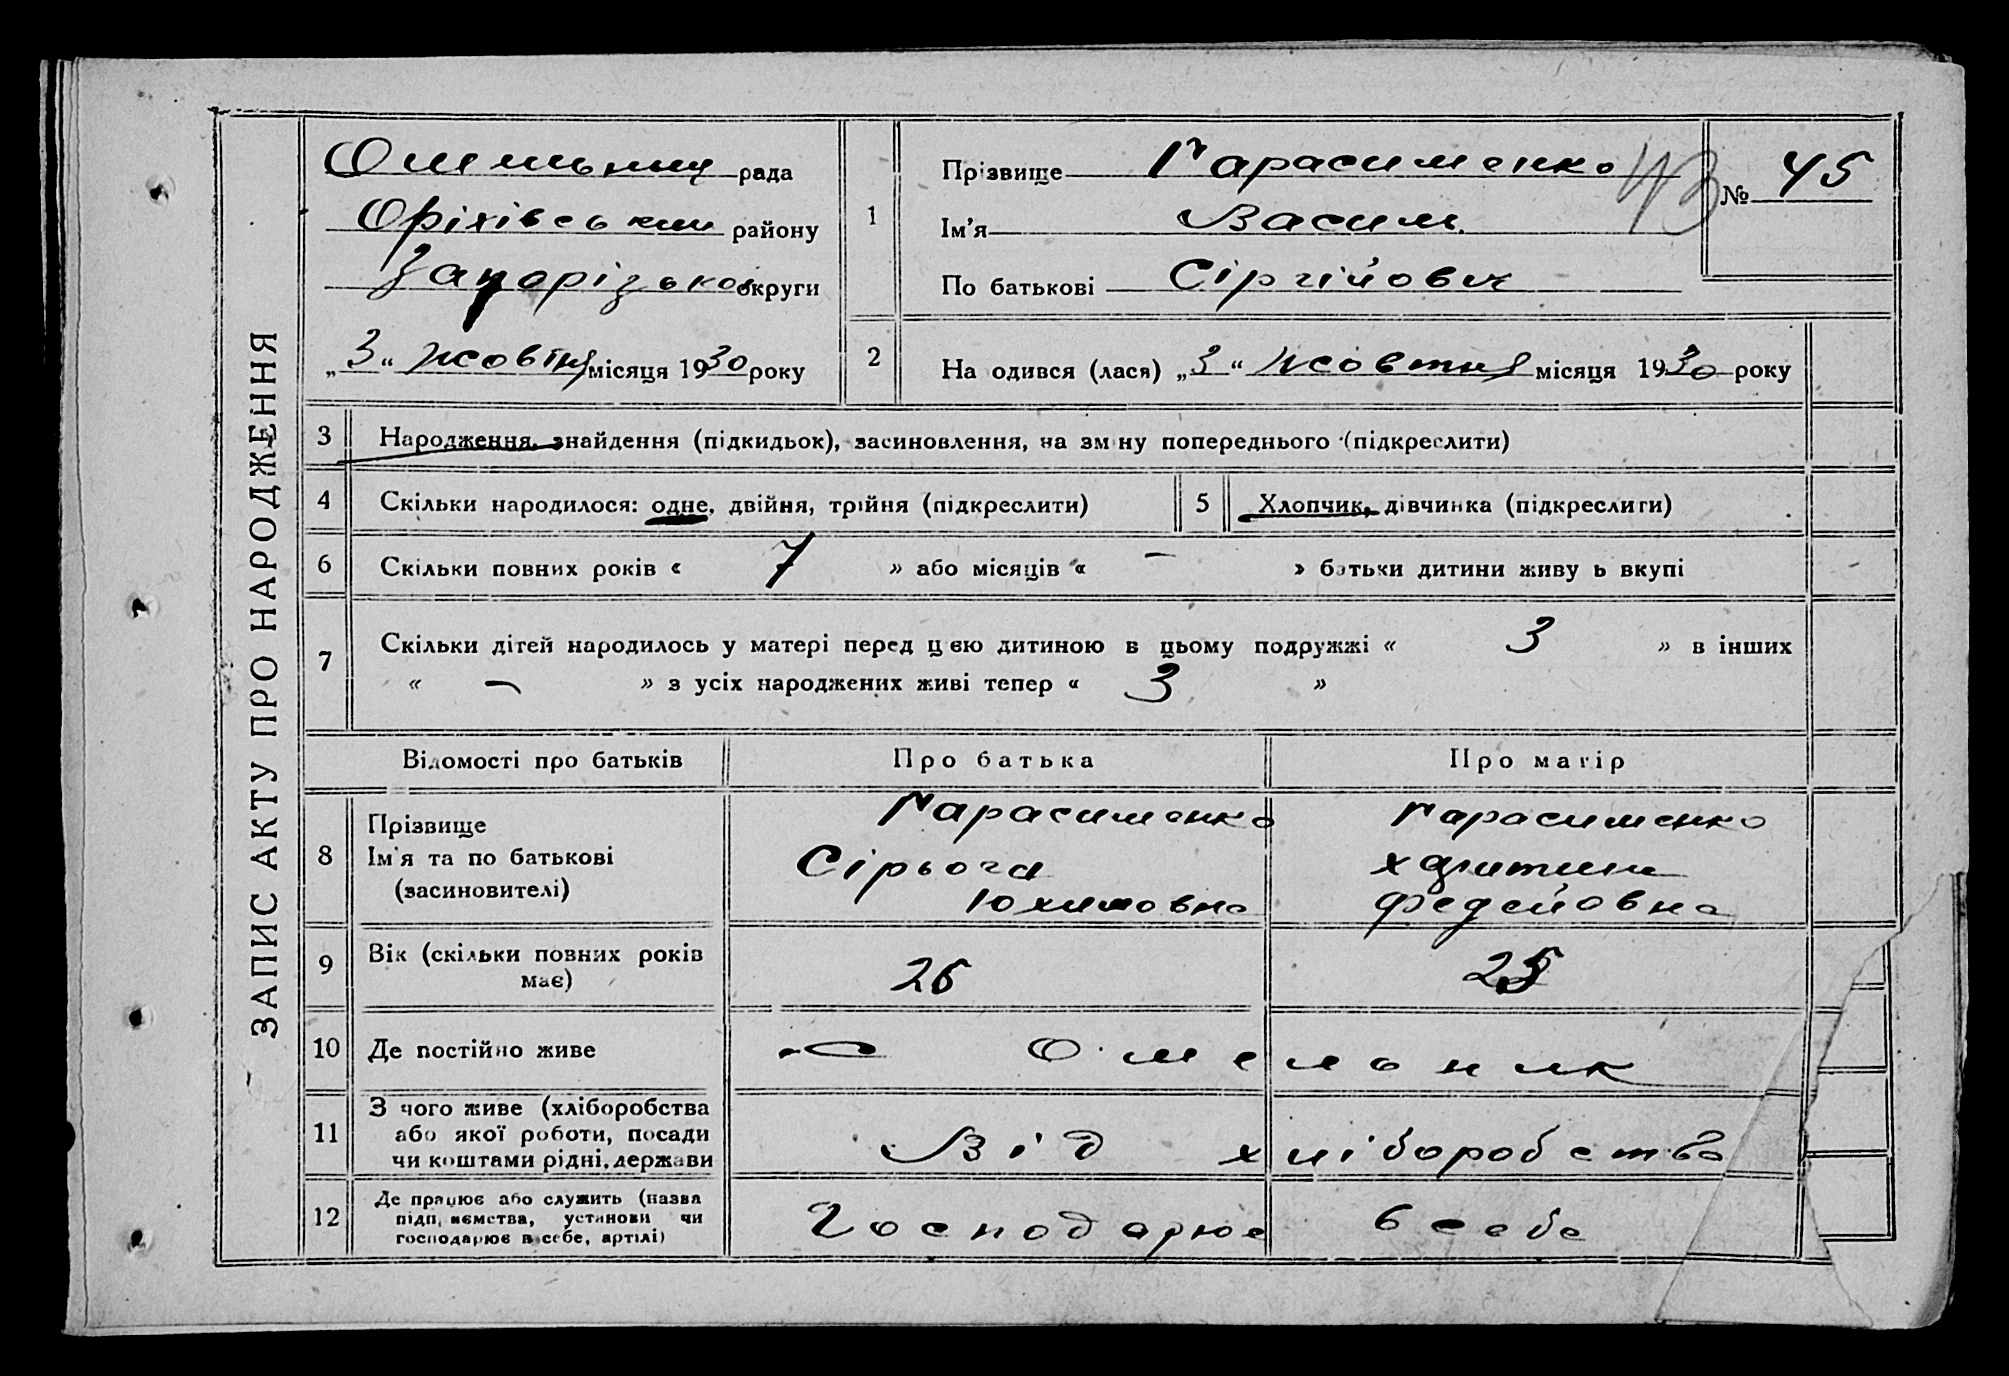 ЗАПИС АКТУ ПРО НАРОДЖЕННЯ
рада
Оріхівський району
Запорізької округи
„3“ жовтня місяця 1930 року
1
Прізвище Гарасименко
Ім'я Василь
По батькові Сіргійович
43
№ 45
2
На одився (лася) „3“ жовтня місяця 1930 року
3 Народження, знайдення (підкидьок), засиновлення, на зміну попереднього (підкреслити)
4 Скільки народилося: одне, двійня, трійня (підкреслити) 5 Хлопчик, дівчинка (підкреслити)
6 Скільки повних років « 7 » або місяців « – » батьки дитини живу ь вкупі
7 Скільки дітей народилось у матері перед цією дитиною в цьому подружжі « 3 » в інших
« – » з усіх народжених живі тепер « 3 »
Відомості про батьків Про батька Про матір
8 Прізвище
Ім'я та по батькові
(засиновителі)
Гарасименко
Сірьога
Юхимовна
Гарасименко
Харитина
Федейовна
9 Вік (скільки повних років
має)
26 25
10 Де постійно живе с Омельник
11 З чого живе (хліборобства
або якої роботи, посади
чи коштами рідні, держави
Від хліборобства
12 Де працює або служить (назва
підприємства, установи чи
господарює в себе, артілі)
Господарює в себе